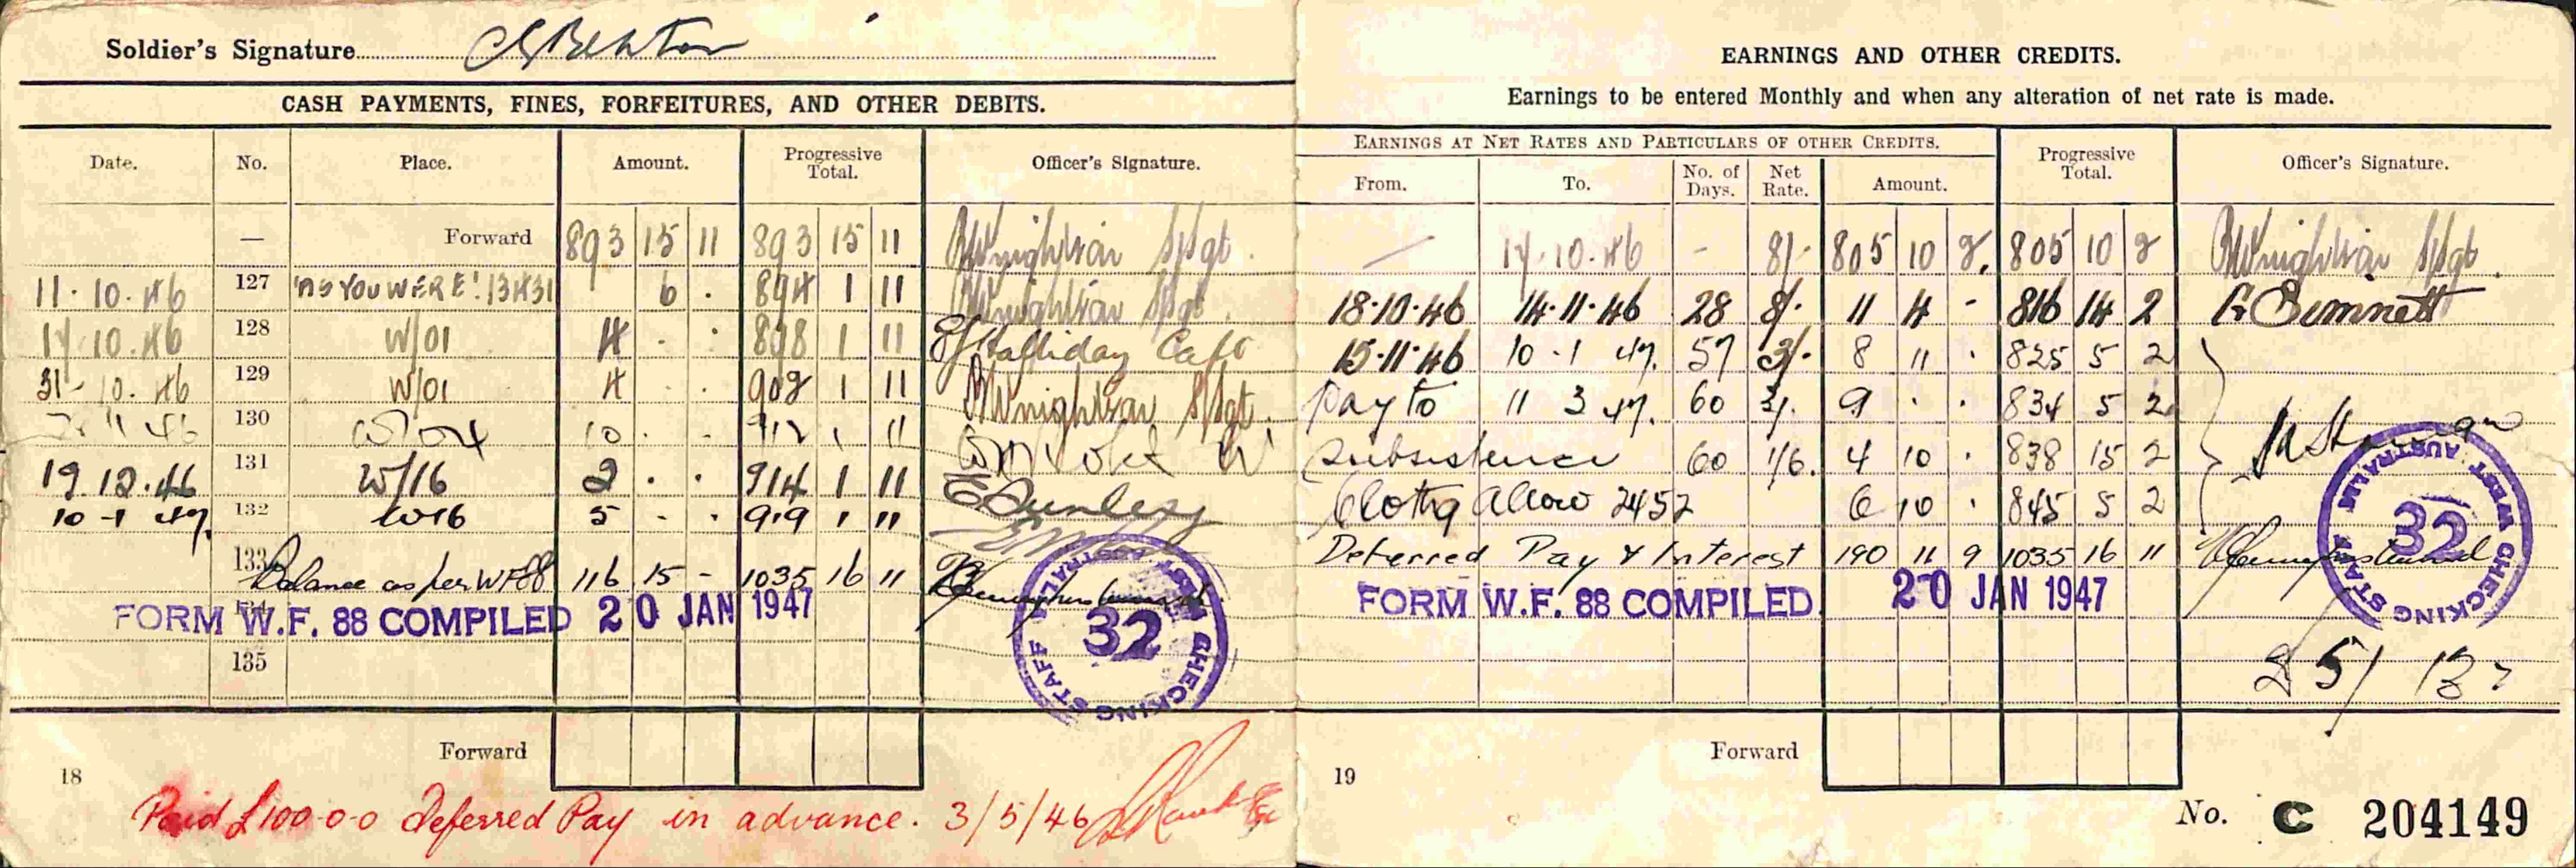 Soldier's Signature
CASH PAYMENTS, FINES, FORFEITURES, AND OTHER DEBITS.
Date. No. Place. Amount. Progressive Total. Officer's Signature.
— Forward 893 15 11 893 15 11 S/Sgt.
11.10.46 127 "AS YOU WERE" 13431 6 . 894 1 11 S/Sgt.
17.10.46 128 W/01 4 - . 898 1 11 Halliday Capt
31-10.46 129 W/01 4 . . 902 1 11 S/Sgt.
11 46 130 10 . . 912 1 11
19.12.46 131 W/16 2 . . 914 1 11
10-1 47. 132 W16 5 - . 919 1 11
133 Balance as per WF88 116 15 - 1035 16 11
FORM W.F. 88 COMPILED 20 JAN 1947
135
WEST AUSTRALIA CHECKING STAFF 32
Forward
18
Paid £100-0-0 deferred Pay in advance. 3/5/46
EARNINGS AND OTHER CREDITS.
Earnings to be entered Monthly and when any alteration of net rate is made.
EARNINGS AT NET RATES AND PARTICULARS OF OTHER CREDITS. Progressive Total. Officer's Signature.
From. To. No. of Days. Net Rate. Amount.
— 17.10.46 - 8/- 805 10 2. 805 10 2 S/Sgt.
18.10.46 14.11.46 28 8/. 11 4 - 816 14 2
15.11.46 10-1 47. 57 3/. 8 11 . 825 5 2
Pay to 11 3 47. 60 3/. 9 . . 834 5 2
Subsistence 60 1/6. 4 10 . 838 15 2
Clothg Allow 2452 6 10 . 845 5 2
Deferred Pay & Interest 190 11 9 1035 16 11
FORM W.F. 88 COMPILED. 20 JAN 1947
WEST AUSTRALIA CHECKING STAFF 32
Forward
19
No. C 204149